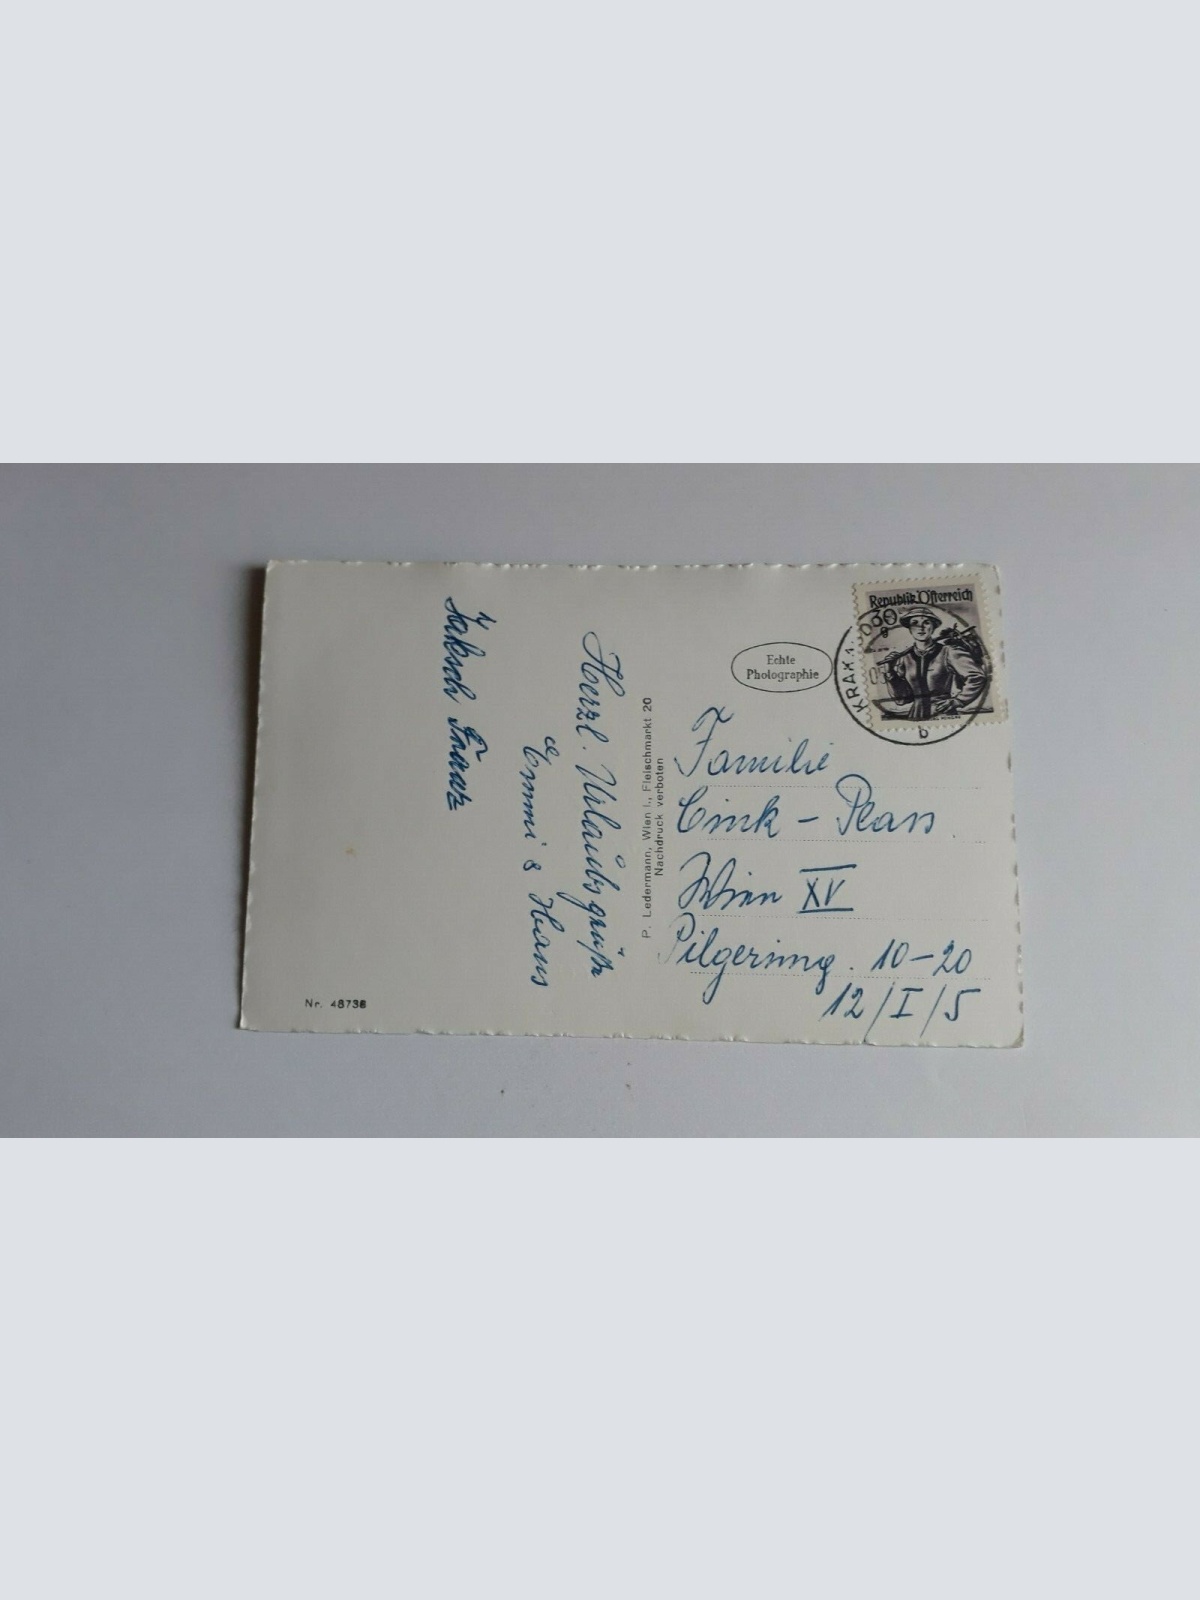 Herzl. Urlaubsgrüße
Emmi & Hans
Jaksch Franz
Nr. 48736
P. Ledermann, Wien I., Fleischmarkt 20
Nachdruck verboten
Echte
Photographie
Republik Österreich
30
g
b
Familie
Cink -
Wien XV
Pilgerimg. 10-20
12/I/5